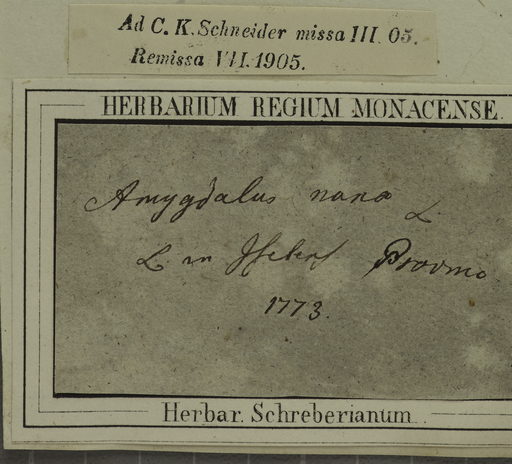 Ad C. K. Schneider missa III. 05.
Remissa VII. 1905.
HERBARIUM REGIUM MONACENSE.
Amygdalus nana L.
L. in
1773.
Herbar. Schreberianum.